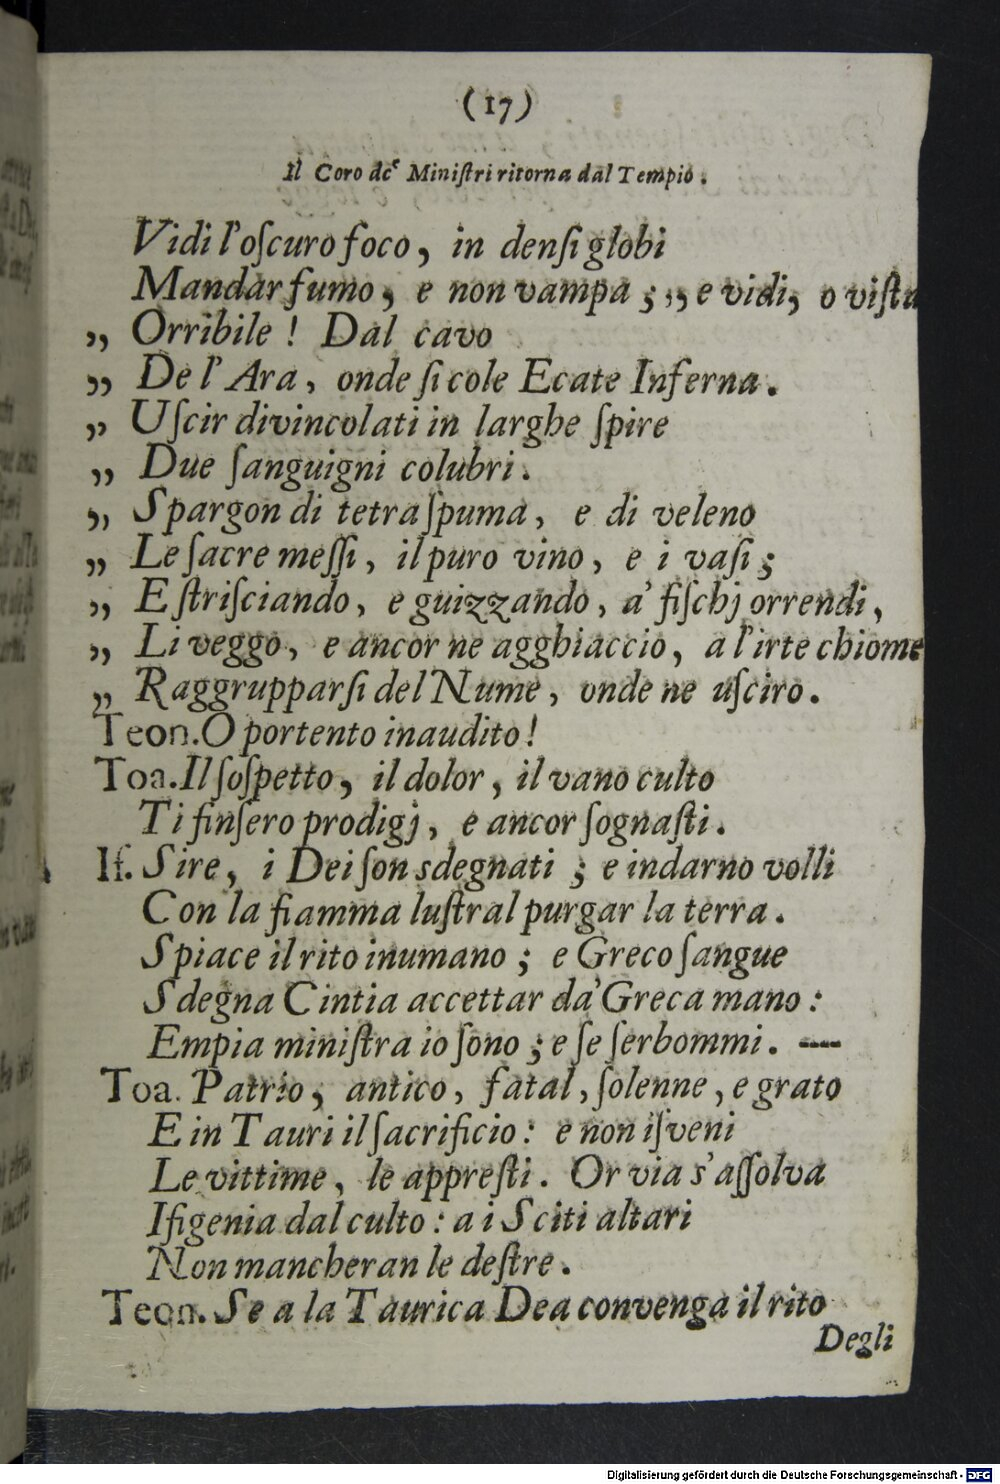 (17)
Il Coro de' Miniſtri ritorna dal Tempio.
Vidi l'oſcuro foco, in denſi globi
Mandar fumo, e non vampa; ,, e vidi, o viſta
,, Orribile! Dal cavo
,, De l'Ara, onde ſi cole Ecate Inferna.
,, Uſcir divincolati in larghe ſpire
,, Due ſanguigni colubri.
,, Spargon di tetra ſpuma, e di veleno
,, Le ſacre meſſi, il puro vino, e i vaſi;
,, E ſtriſciando, e guizzando, a' fiſchj orrendi,
,, Li veggo, e ancor ne agghiaccio, a l'irte chiome
,, Raggrupparſi del Nume, onde ne uſciro.
Teon. O portento inaudito!
Toa. Il ſoſpetto, il dolor, il vano culto
Ti finſero prodigj, e ancor ſognaſti.
If. Sire, i Dei ſon sdegnati; e indarno volli
Con la fiamma luſtral purgar la terra.
Spiace il rito inumano; e Greco ſangue
Sdegna Cintia accettar da' Greca mano:
Empia miniſtra io ſono; e ſe ſerbommi. ----
Toa. Patrio, antico, fatal, ſolenne, e grato
E in Tauri il ſacrificio: e non iſveni
Le vittime, le appreſti. Or via s'aſſolva
Ifigenia dal culto: a i Sciti altari
Non mancheran le deſtre.
Teon. Se a la Taurica Dea convenga il rito
Degli
Digitalisierung gefördert durch die Deutsche Forschungsgemeinschaft - DFG